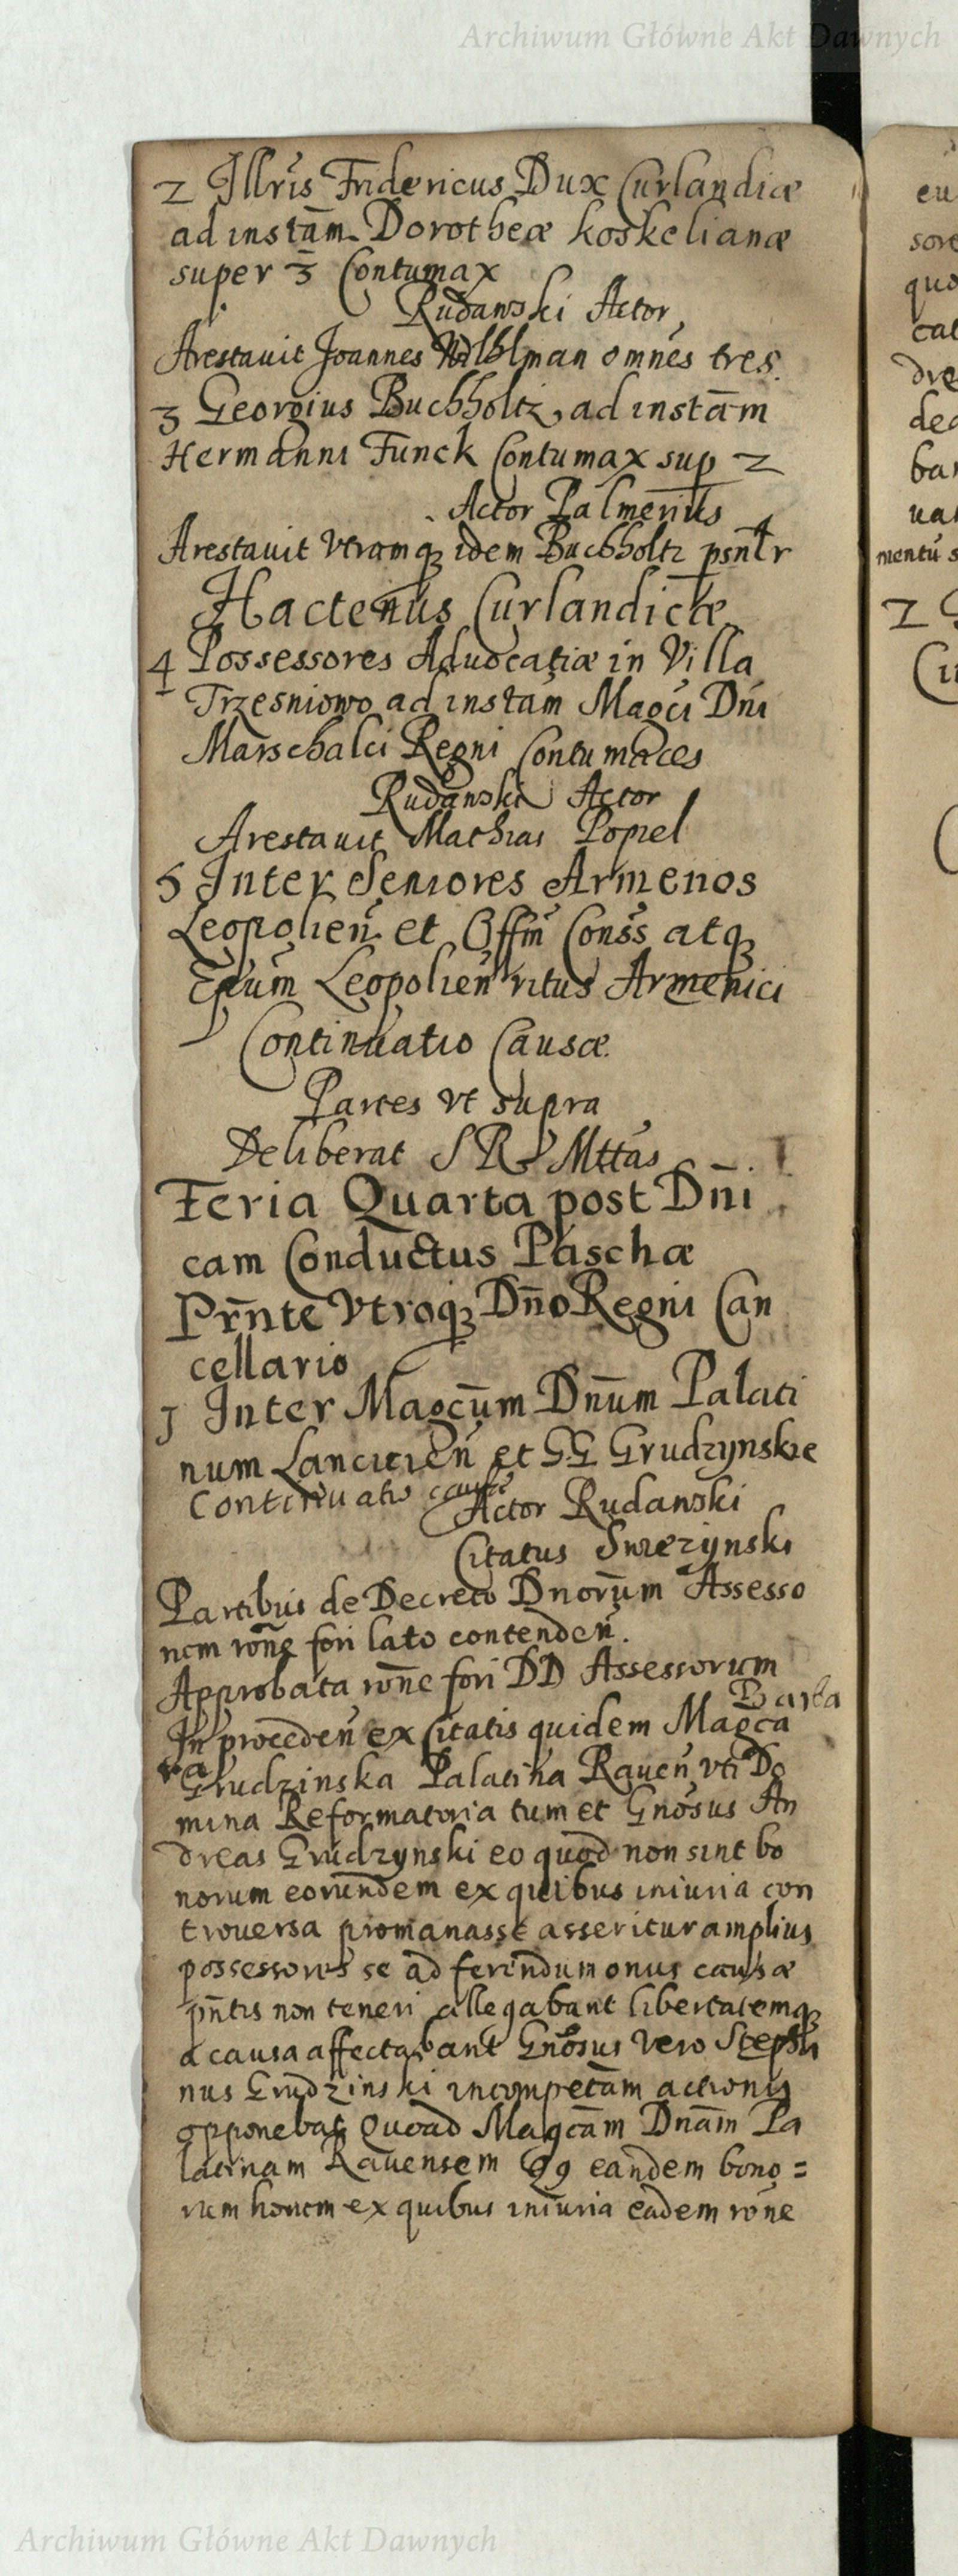 Archiwum Główne Akt Dawnych
2 Illris Fridericus Dux Curlandiæ
ad instam Dorotheæ koskelianæ
super 3 Contumax
Rudawski Actor
Arestauit Joannes omnes tres.
3 Georgius Buchholtz ad instam
Hermanni Funck Contumax sup 2
Actor Palmerius
Arestauit vtramq idem Buchholtz psntr
Hactenus Curlandicæ
4 Possessores Aduocatiæ in Villa
Trzesniowo ad instam Magci Dni
Marschalci Regni Contumaces
Rudawski Actor
Arestauit Mathias Popiel
5 Inter Seniores Armenos
Leopolien et Offm Conss atq
Epum Leopolien ritus Armenici
Continuatio Causæ
Partes vt supra
Deliberat S R Mttas
Feria Quarta post Dni
cam Conductus Paschæ
Prnte Vtroq Dno Regni Can
cellario
1 Inter Magcum Dnum Palati
num Lancicien et GG Grudzynskie
Continuatio causæ
Actor Rudawski
Citatus Swiezynski
Partibus de Decreto Dnorum Assesso
rem rone fori lato contenden.
Approbata rone fori DD Assessorum
Barba
In proceden ex Citatis quidem Magca
ra
Grudzinska Palatina Rauen vti Do
mina Reformatoria tum et Gnosus An
dreas Grudzynski eo quod non sint bo
norum eorundem ex quibus iniuria con
trouersa promanasse asseritur amplius
possessores se ad ferendum onus causæ
pntis non teneri allegabant libertatemq
a causa affectabant Gnosus vero Stepha
nus Grudzinski incompetam actionis
opponebat Quoad Magcam Dnam Pa
latinam Rauensem qq eandem bono =
rum horum ex quibus iniuria eadem rone
eu
sore
quo
cat
dre
dec
bar
uar
mentu s
2
Ci
Archiwum Główne Akt Dawnych